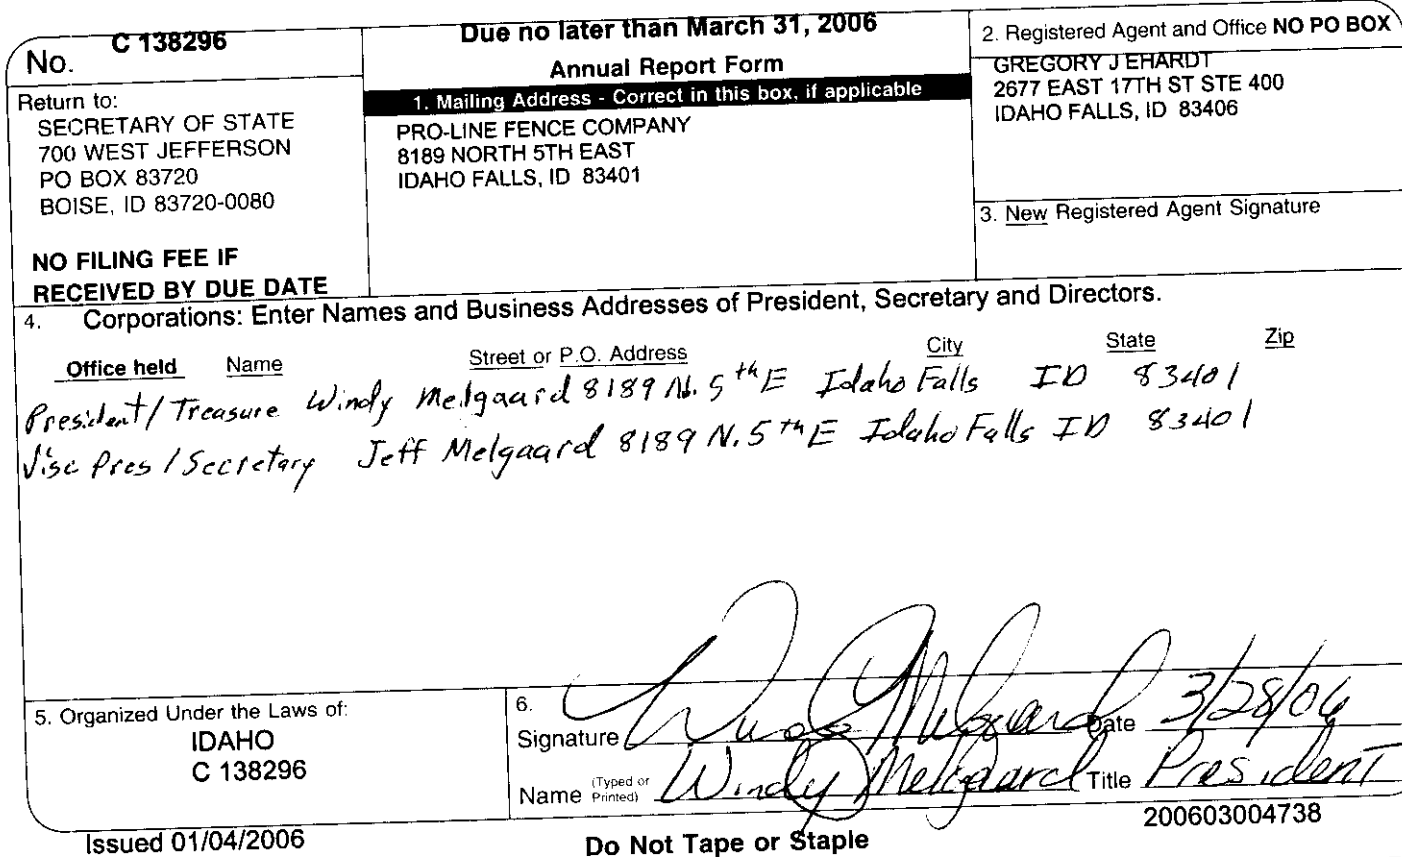 No. C 138296
Return to:
SECRETARY OF STATE
700 WEST JEFFERSON
PO BOX 83720
BOISE, ID 83720-0080
NO FILING FEE IF
RECEIVED BY DUE DATE
Due no later than March 31, 2006
Annual Report Form
1. Mailing Address - Correct in this box, if applicable
PRO-LINE FENCE COMPANY
8189 NORTH 5TH EAST
IDAHO FALLS, ID 83401
2. Registered Agent and Office NO PO BOX
GREGORY J EHARDT
2677 EAST 17TH ST STE 400
IDAHO FALLS, ID 83406
3. New Registered Agent Signature
4. Corporations: Enter Names and Business Addresses of President, Secretary and Directors.
Office held Name Street or P.O. Address City State Zip
President/Treasure Windy Melgaard 8189 N. 5th E Idaho Falls ID 83401
Visc Pres/Secretary Jeff Melgaard 8189 N. 5th E Idaho Falls ID 83401
5. Organized Under the Laws of:
IDAHO
C 138296
6.
Signature Windy Melgaard Date 3/28/06
Name (Typed or Printed) Windy Melgaard Title President
200603004738
Issued 01/04/2006
Do Not Tape or Staple